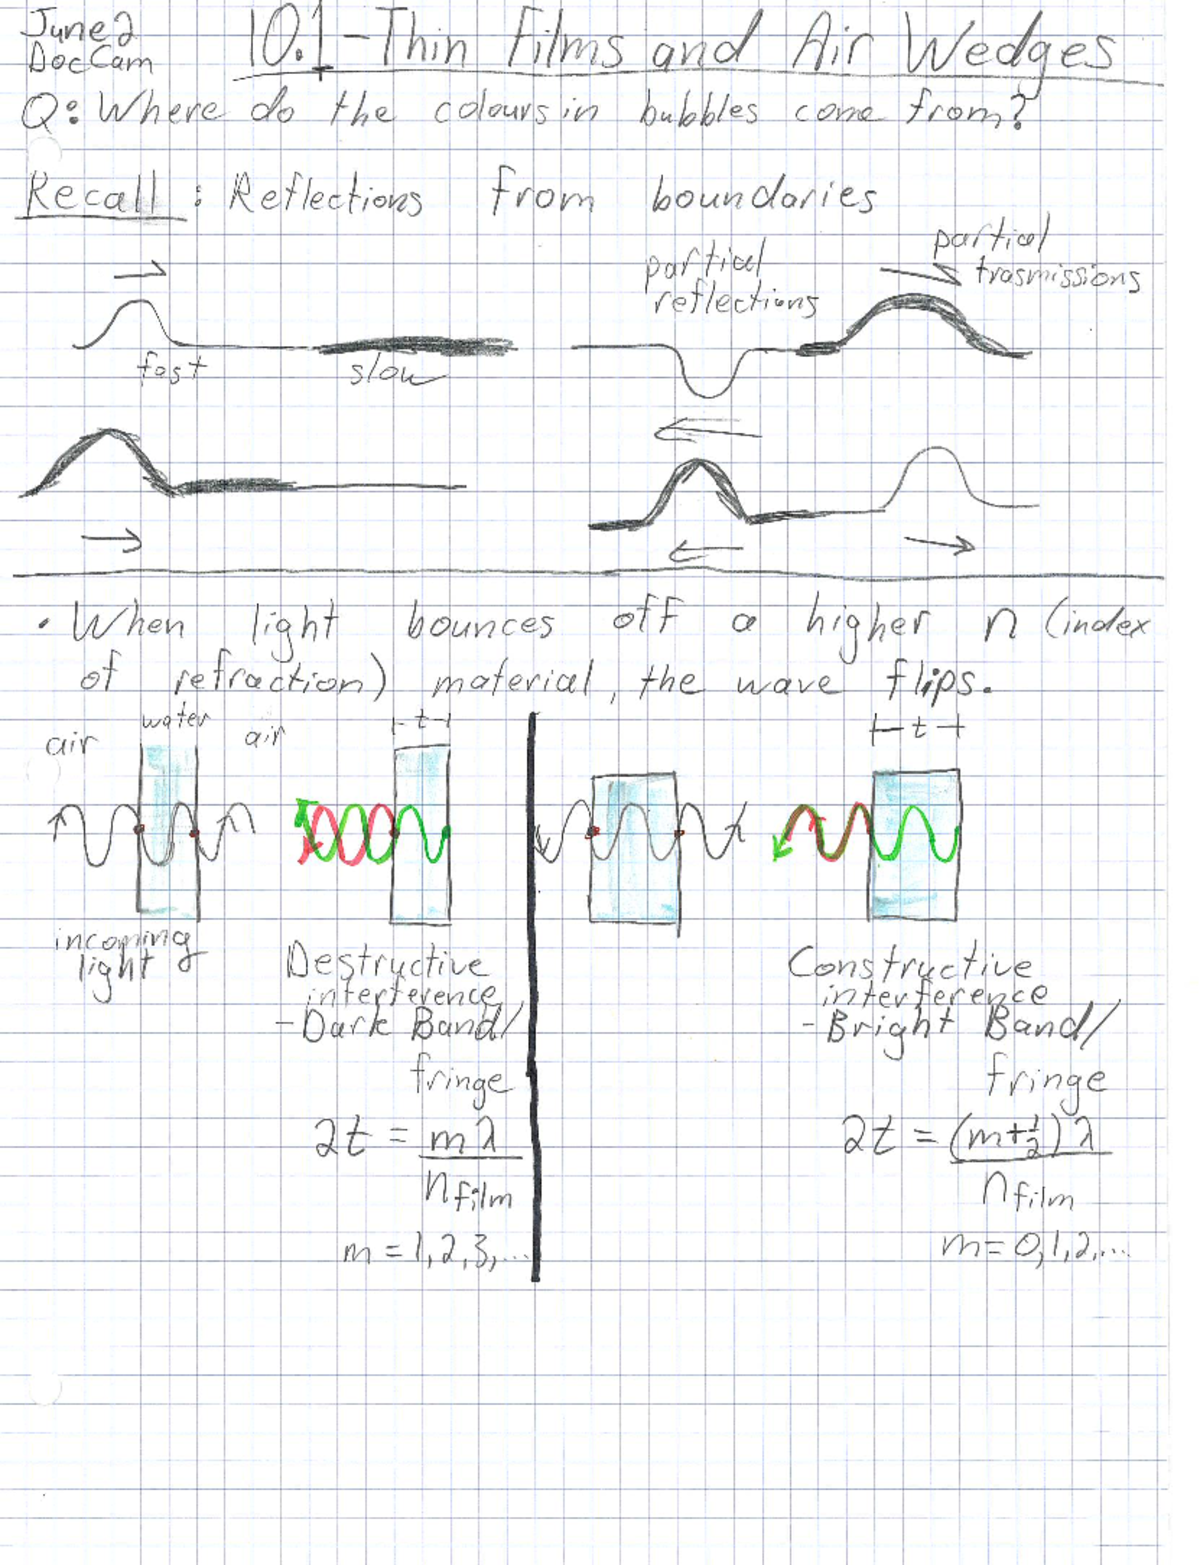 June 2
DocCam
10.1 - Thin Films and Air Wedges
Q: Where do the colours in bubbles come from?
Recall: Reflections from boundaries
partial
reflections
partial
trasmissions
fast
slow
• When light bounces off a higher n (index
of refraction) material, the wave flips.
air
water
air
t
t
incoming
light
Destructive
interference
- Dark Band/
fringe
2t = mλ
n film
m = 1, 2, 3, ...
Constructive
interference
- Bright Band/
fringe
2t = (m+½)λ
n film
m = 0, 1, 2, ...